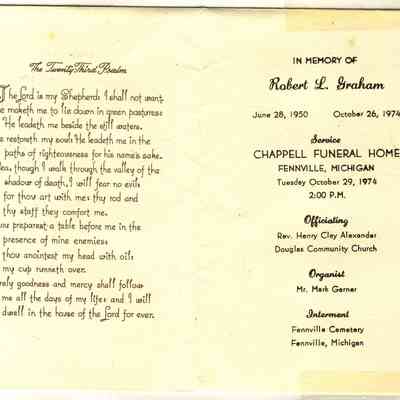 The Twenty Third Psalm
The Lord is my Shepherd: I shall not want.
maketh me to lie down in green pastures:
He leadeth me beside the still waters.
restoreth my soul: He leadeth me in the
paths of righteousness for his name's sake.
though I walk through the valley of the
shadow of death, I will fear no evil:
for thou art with me; thy rod and
thy staff they comfort me.
preparest a table before me in the
presence of mine enemies:
thou anointest my head with oil;
my cup runneth over.
goodness and mercy shall follow
me all the days of my life: and I will
dwell in the house of the Lord for ever.
IN MEMORY OF
Robert L. Graham
June 28, 1950 October 26, 1974
Service
CHAPPELL FUNERAL HOME
FENNVILLE, MICHIGAN
Tuesday October 29, 1974
2:00 P.M.
Officiating
Rev. Henry Clay Alexander
Douglas Community Church
Organist
Mr. Mark Garner
Interment
Fennville Cemetery
Fennville, Michigan